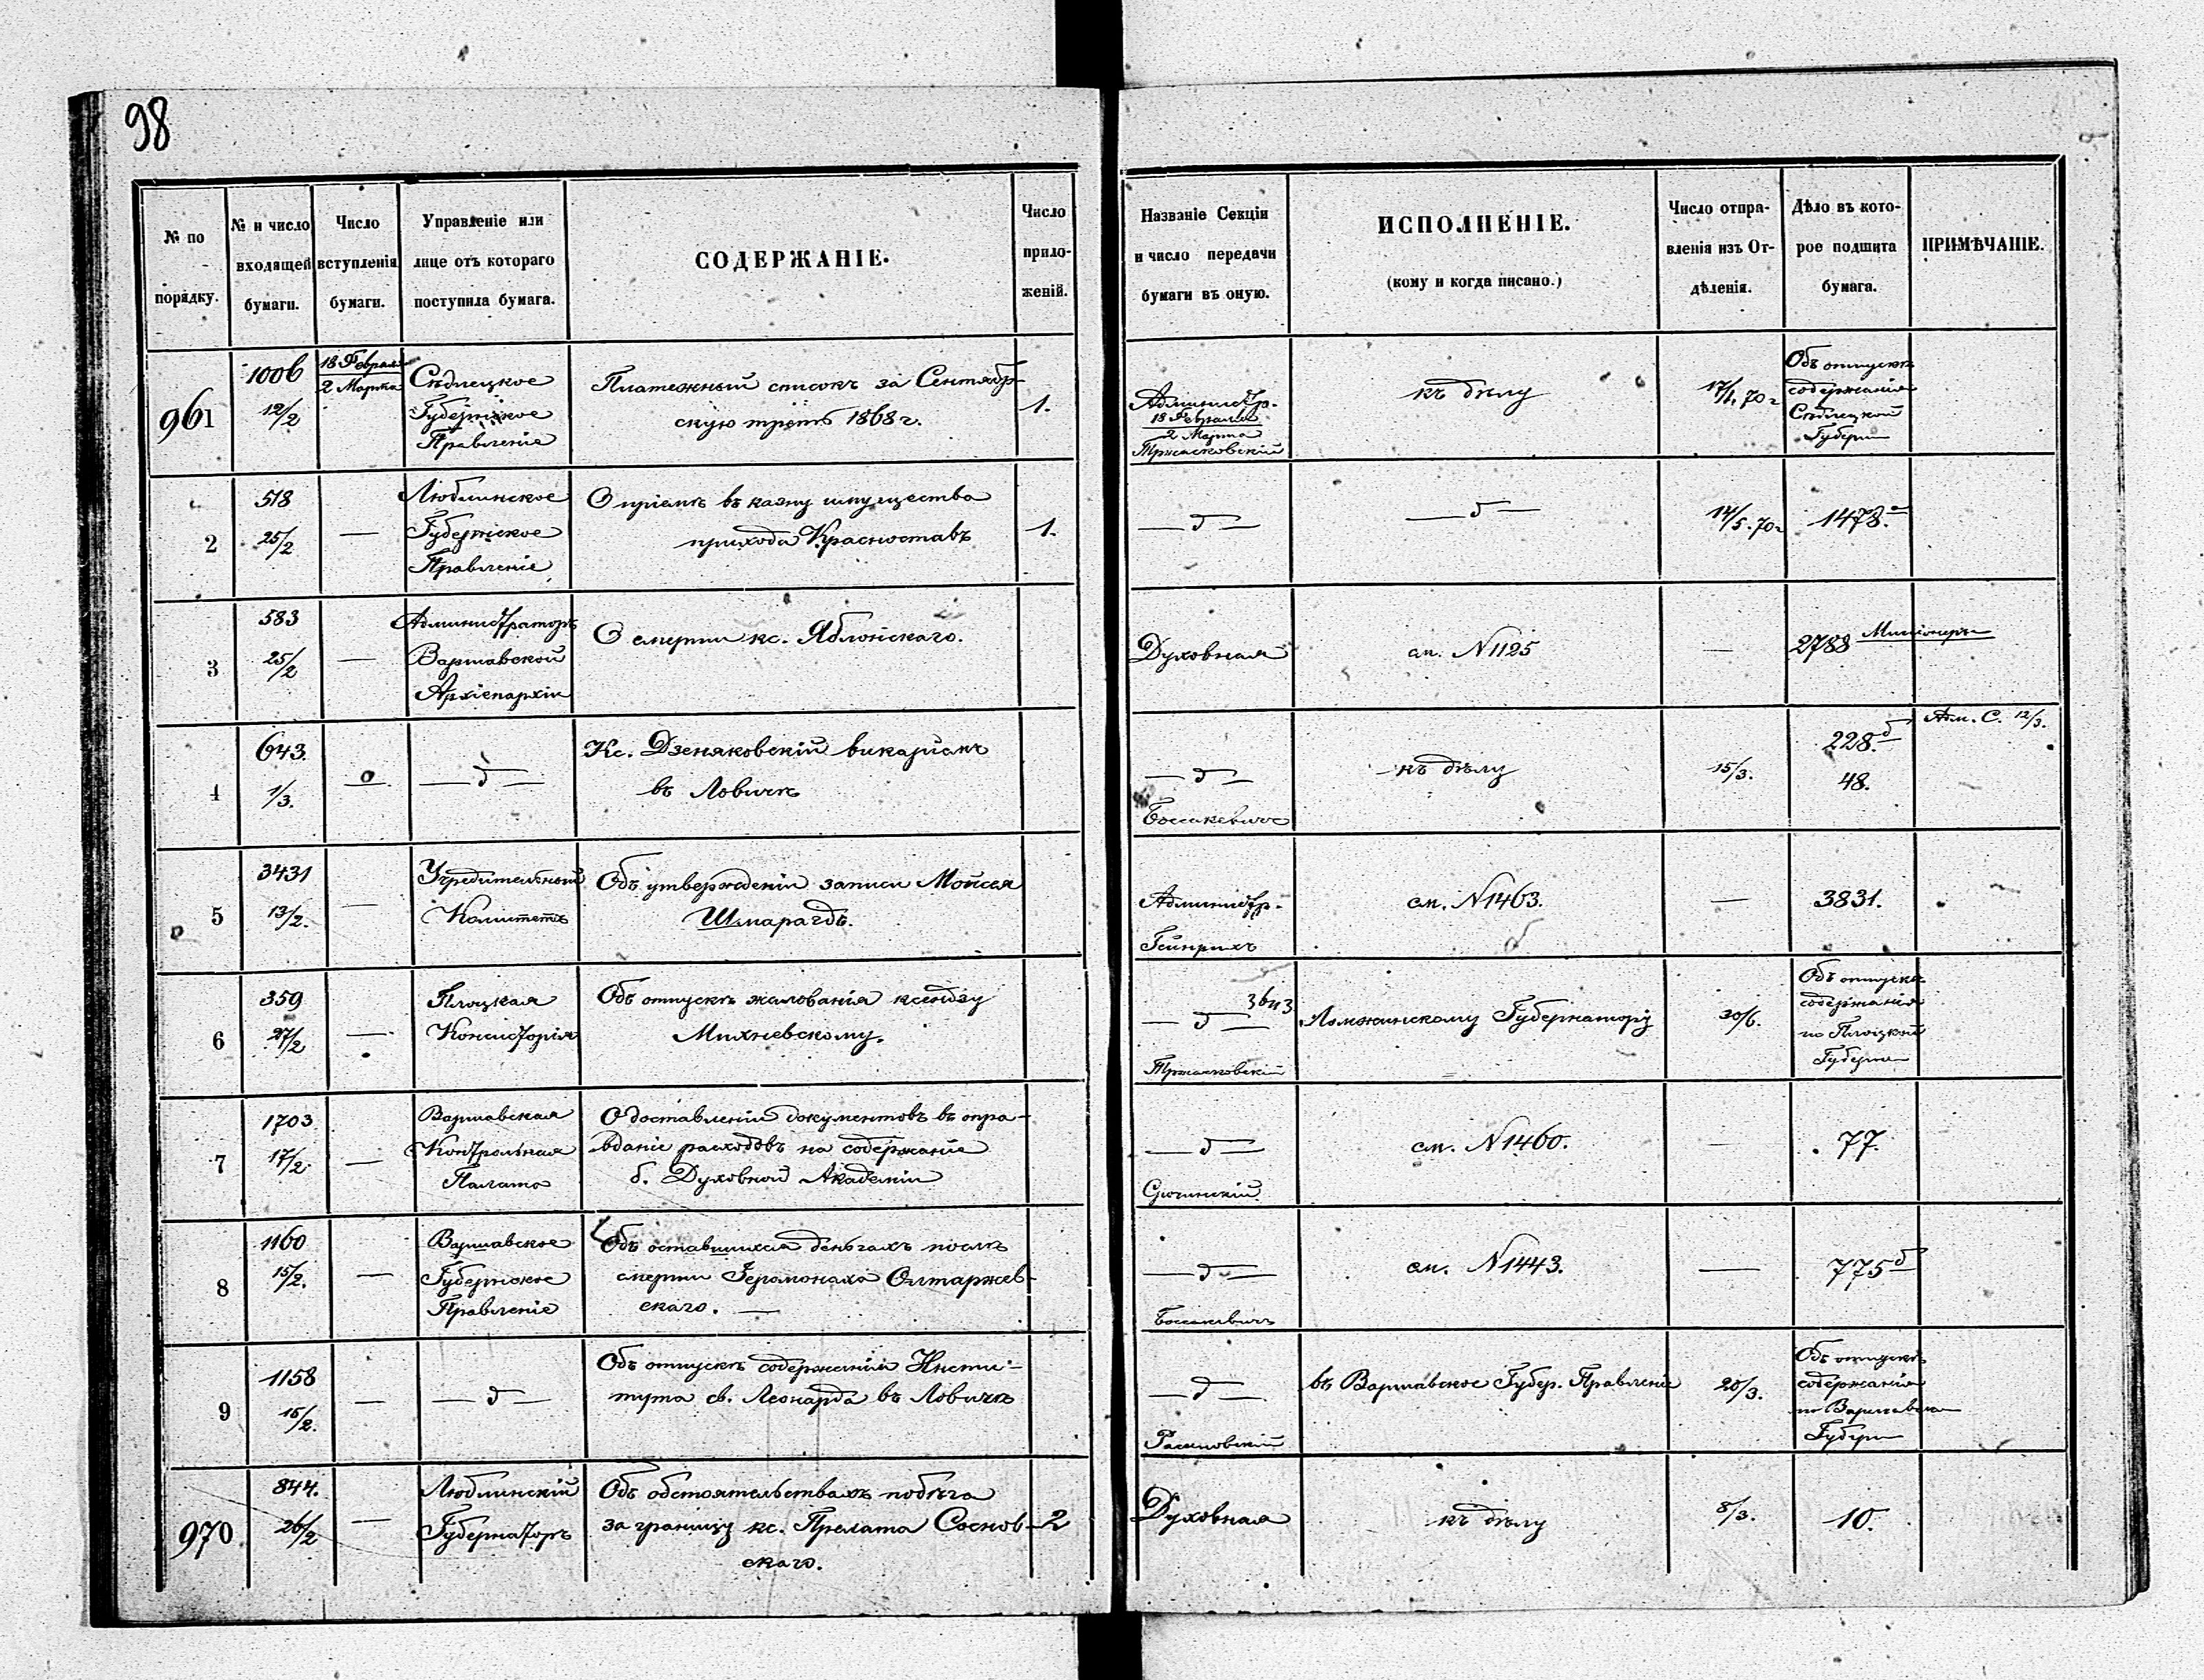 98
№ по порядку.
№ и число входящей бумаги.
Число вступленія бумаги.
Управленіе или лице отъ котораго поступила бумага.
СОДЕРЖАНІЕ.
Число приложеній.
Названіе Секціи и число передачи бумаги въ оную.
ИСПОЛНЕНІЕ.
(кому и когда писано.)
Число отправленія изъ Отдѣленія.
Дѣло въ которое подшита бумага.
ПРИМѢЧАНІЕ.
961
1006
12/2
18 Февраля
2 Марта
Сѣдлецкое
Губернское
Правленіе
Платежный списокъ за Сентябр-
скую треть 1868 г.
1.
Администр.
18 Февраля
2 Марта
Тржасковскій
къ дѣлу
Объ отпускѣ
содержанія
Сѣдлецкой
Губерн
2
518
25/2
—
Люблинское
Губернское
Правленіе
О пріемѣ въ казну имущества
прихода Красноставъ
1.
— д —
— д —
14/5. 70 г
1478. а
3
583
25/2
—
Администраторъ
Варшавской
Архіепархіи
О смерти кс. Яблонскаго.
Духовная
см. N 1125
—
2788
Миссіонеры
4
643.
1/3.
— д —
Кс. Дзеняковскій викаріемъ
въ Ловичѣ
— д —
къ дѣлу
15/3.
228. б
48.
Адм. С. 12/3.
5
3431
13/2.
—
Учредительный
Комитетъ
Объ утвержденіи записи Мойсея
Шмарагдъ.
Администр.
Гейнрихъ
см. N 1463.
—
3831.
6
359
27/2
—
Плоцкая
Консисторія
Объ отпускѣ жалованія ксендзу
Михневскому.
— д —
Тржасковскій
Ломжинскому Губернатору
30/6.
Объ отпускѣ
содержанія
по Плоцкой
Губерн
7
1703
17/2.
—
Варшавская
Контрольная
Палата
О доставленіи документовъ въ опра-
вданіе расходовъ на содержаніе
б. Духовной Академіи
— д —
см. N 1460.
—
77.
8
1160
15/2.
—
Варшавское
Губернское
Правленіе
Объ оставшихся деньгахъ послѣ
смерти Іеромонаха Олтаржев-
скаго. —
— д —
см. N 1443.
—
775 б
9
1158
15/2.
—
— д —
Объ отпускѣ содержанія Инсти-
тута св. Леонарда въ Ловичѣ
— д —
въ Варшавское Губер. Правленіе
20/3.
Объ отпускѣ
содержанія
по Варшавской
Губерн
970
844.
26/2
—
Люблинскій
Губернаторъ
Объ обстоятельствахъ побѣга
за границу кс. Прелата Соснов-
скаго.
2
Духовная
къ дѣлу
8/3.
10.